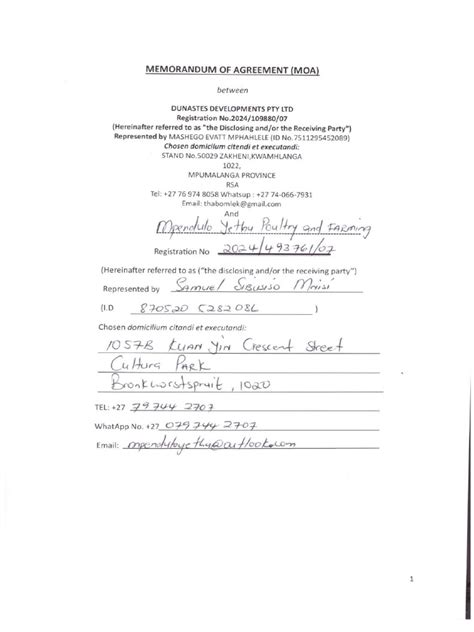 MEMORANDUM OF AGREEMENT (MOA)
between
DUNASTES DEVELOPMENTS PTY LTD
Registration No.2024/109880/07
(Hereinafter referred to as "the Disclosing and/or the Receiving Party")
Represented by MASHEGO EVATT MPHAHLELE (ID No.7511295452089)
Chosen domicilium citandi et executandi:
STAND No.50029 ZAKHENI,KWAMHLANGA
1022,
MPUMALANGA PROVINCE
RSA
Tel: +27 76 974 8058 Whatsup : +27 74-066-7931
Email: thabomlek@gmail.com
And
Mpendulo Yethu Poultry and FARMING
Registration No 2024/493761/07
(Hereinafter referred to as ("the disclosing and/or the receiving party")
Represented by SAMUEL SIBUSISO MNISI
(I.D 870520 5282 086 )
Chosen domicilium citandi et executandi:
1057B KUAN YIN Crescent Street
Cultura PARK
Bronkhorstspruit, 1020
TEL: +27 79 744 2707
WhatApp No. +27 079 744 2707
Email: mpenduloyethu@outlook.com
1